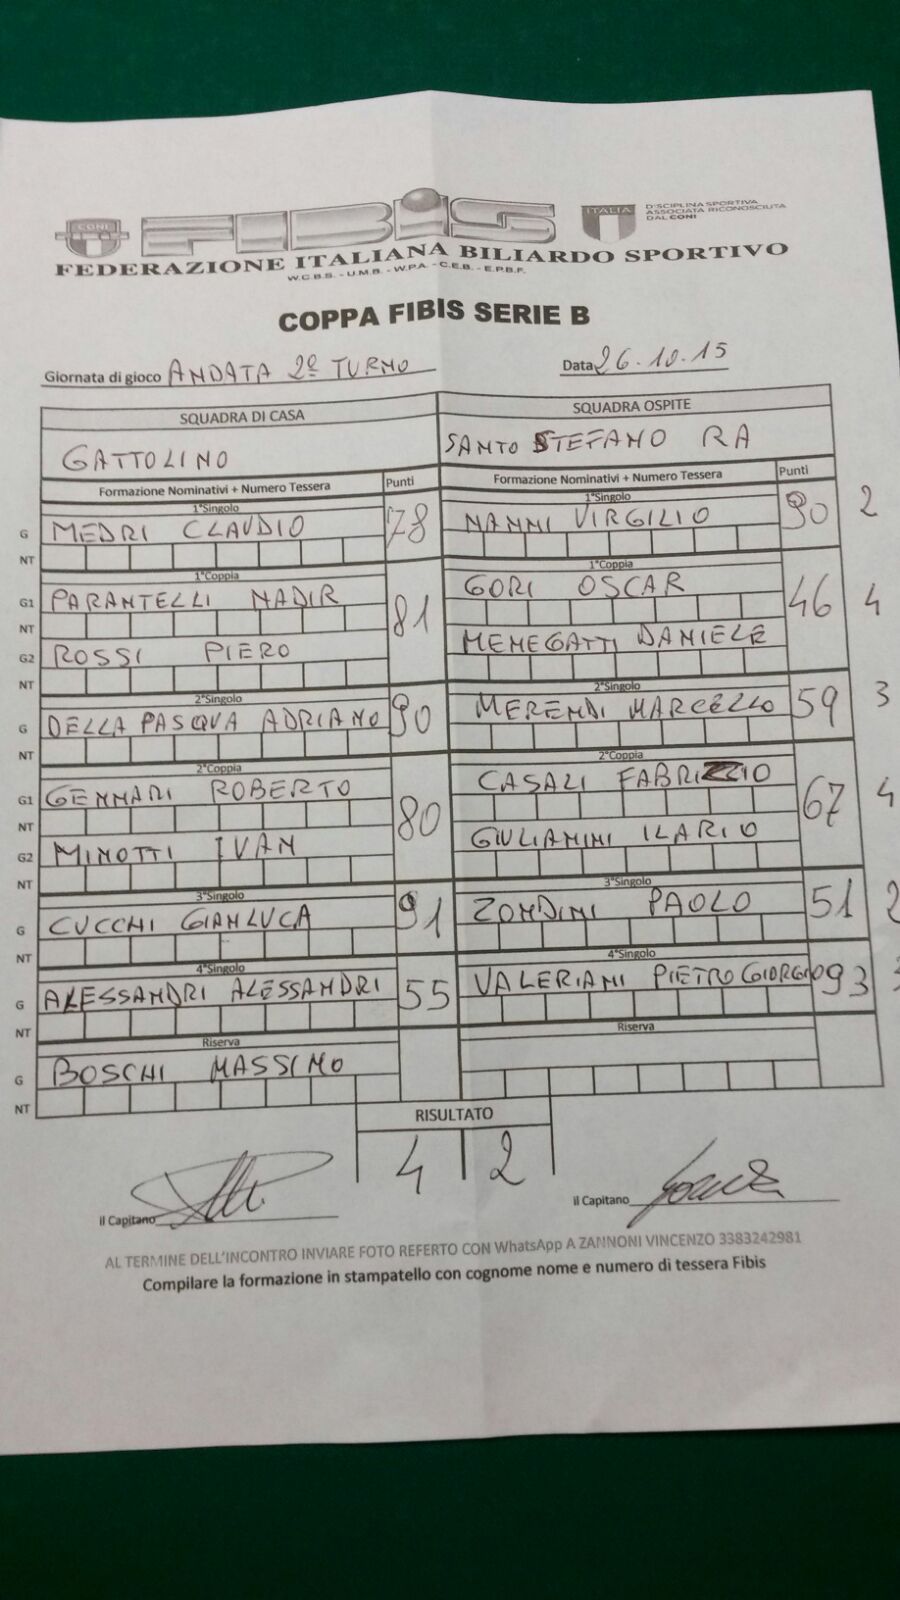 CONI
FIBiS
ITALIA
DISCIPLINA SPORTIVA
ASSOCIATA RICONOSCIUTA
DAL CONI
FEDERAZIONE ITALIANA BILIARDO SPORTIVO
W.C.B.S. - U.M.B. - W.P.A. - C.E.B. - E.P.B.F.
COPPA FIBIS SERIE B
Giornata di gioco ANDATA 2º TURNO Data 26.10.15
SQUADRA DI CASA SQUADRA OSPITE
GATTOLINO SANTO STEFANO RA
Formazione Nominativi + Numero Tessera Punti Formazione Nominativi + Numero Tessera Punti
1°Singolo 1°Singolo
G MEDRI CLAUDIO 78 NANNI VIRGILIO 90 2
NT
1°Coppia 1°Coppia
G1 PARANTELLI NADIR 81 GORI OSCAR 46 4
NT
G2 ROSSI PIERO MENEGATTI DANIELE
NT
2°Singolo 2°Singolo
G DELLA PASQUA ADRIANO 90 MERENDI MARCELLO 59 3
NT
2°Coppia 2°Coppia
G1 GENNARI ROBERTO 80 CASALI FABRIZZIO 67 4
NT
G2 MINOTTI IVAN GIULIANINI ILARIO
NT
3°Singolo 3°Singolo
G CUCCHI GIANLUCA 91 ZONDINI PAOLO 51 2
NT
4°Singolo 4°Singolo
G ALESSANDRI ALESSANDRI 55 VALERIANI PIETRO GIORGIO 93
NT
Riserva Riserva
G BOSCHI MASSIMO
NT
RISULTATO
4 2
il Capitano il Capitano
AL TERMINE DELL'INCONTRO INVIARE FOTO REFERTO CON WhatsApp A ZANNONI VINCENZO 3383242981
Compilare la formazione in stampatello con cognome nome e numero di tessera Fibis